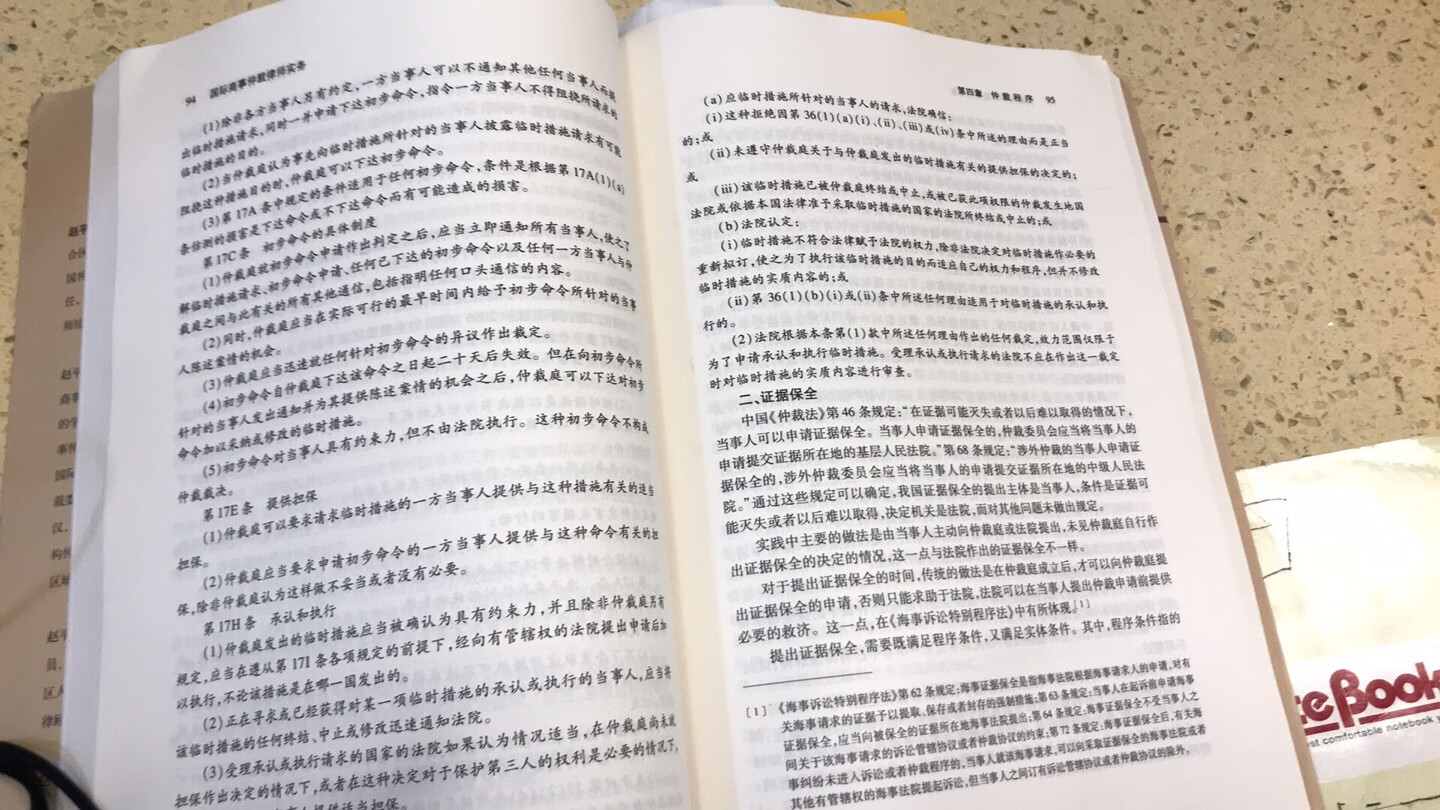 94 国际商事仲裁律师实务
(1)除非各方当事人另有约定,一方当事人可以不通知其他任何当事人而提
出临时措施请求,同时一并申请下达初步命令,指令一方当事人不得阻挠所请求的
临时措施的目的。
(2)当仲裁庭认为事先向临时措施所针对的当事人披露临时措施请求有可能
阻挠这种措施目的时,仲裁庭可以下达初步命令。
(3)第17A条中规定的条件适用于任何初步命令,条件是根据第17A(1)(a)
条估测的损害是下达命令或不下达命令而有可能造成的损害。
第17C条 初步命令的具体制度
(1)仲裁庭就初步命令申请作出判定之后,应当立即通知所有当事人,使之了
解临时措施请求、初步命令申请、任何已下达的初步命令以及任何一方当事人与仲
裁庭之间与此有关的所有其他通信,包括指明任何口头通信的内容。
(2)同时,仲裁庭应当在实际可行的最早时间内给予初步命令所针对的当事
人陈述案情的机会。
(3)仲裁庭应当迅速就任何针对初步命令的异议作出裁定。
(4)初步命令自仲裁庭下达该命令之日起二十天后失效。但在向初步命令所
针对的当事人发出通知并为其提供陈述案情的机会之后,仲裁庭可以下达对初步
命令加以采纳或修改的临时措施。
(5)初步命令对当事人具有约束力,但不由法院执行。这种初步命令不构成
仲裁裁决。
第17E条 提供担保
(1)仲裁庭可以要求请求临时措施的一方当事人提供与这种措施有关的适当
担保。
(2)仲裁庭应当要求申请初步命令的一方当事人提供与这种命令有关的担
保,除非仲裁庭认为这样做不妥当或者没有必要。
第17H条 承认和执行
(1)仲裁庭发出的临时措施应当被确认为具有约束力,并且除非仲裁庭另有
规定,应当在遵从第17I条各项规定的前提下,经向有管辖权的法院提出申请后加
以执行,不论该措施是在哪一国发出的。
(2)正在寻求或已经获得对某一项临时措施的承认或执行的当事人,应当将
该临时措施的任何终结、中止或修改迅速通知法院。
(3)受理承认或执行请求的国家的法院如果认为情况适当,在仲裁庭尚未就
担保作出决定的情况下,或者在这种决定对于保护第三人的权利是必要的情况下,
人提供适当担保。
第四章 仲裁程序 95
(a)应临时措施所针对的当事人的请求,法院确信:
(i)这种拒绝因第36(1)(a)(i)、(ii)、(iii)或(iv)条中所述的理由而是正当
的;或
(ii)未遵守仲裁庭关于与仲裁庭发出的临时措施有关的提供担保的决定的;
或
(iii)该临时措施已被仲裁庭终结或中止,或被已获此项权限的仲裁发生地国
法院或依据本国法律准予采取临时措施的国家的法院所终结或中止的;或
(b)法院认定:
(i)临时措施不符合法律赋予法院的权力,除非法院决定对临时措施作必要的
重新拟订,使之为了执行该临时措施的目的而适应自己的权力和程序,但并不修改
临时措施的实质内容的;或
(ii)第36(1)(b)(i)或(ii)条中所述任何理由适用于对临时措施的承认和执
行的。
(2)法院根据本条第(1)款中所述任何理由作出的任何裁定,效力范围仅限于
为了申请承认和执行临时措施。受理承认或执行请求的法院不应在作出这一裁定
时对临时措施的实质内容进行审查。
二、证据保全
中国《仲裁法》第46条规定:“在证据可能灭失或者以后难以取得的情况下,
当事人可以申请证据保全。当事人申请证据保全的,仲裁委员会应当将当事人的
申请提交证据所在地的基层人民法院。”第68条规定:“涉外仲裁的当事人申请证
据保全的,涉外仲裁委员会应当将当事人的申请提交证据所在地的中级人民法
院。”通过这些规定可以确定,我国证据保全的提出主体是当事人,条件是证据可
能灭失或者以后难以取得,决定机关是法院,而对其他问题未做出规定。
实践中主要的做法是由当事人主动向仲裁庭或法院提出,未见仲裁庭自行作
出证据保全的决定的情况,这一点与法院作出的证据保全不一样。
对于提出证据保全的时间,传统的做法是在仲裁庭成立后,才可以向仲裁庭提
出证据保全的申请,否则只能求助于法院,法院可以在当事人提出仲裁申请前提供
必要的救济。这一点,在《海事诉讼特别程序法》中有所体现。[1]
提出证据保全,需要既满足程序条件,又满足实体条件。其中,程序条件指的
[1] 《海事诉讼特别程序法》第62条规定:海事证据保全是指海事法院根据海事请求人的申请,对有
关海事请求的证据予以提取、保存或者封存的强制措施;第63条规定:当事人在起诉前申请海事
证据保全,应当向被保全的证据所在地海事法院提出;第64条规定:海事证据保全不受当事人之
间关于该海事请求的诉讼管辖协议或者仲裁协议的约束;第72条规定:海事证据保全后,有关海
事纠纷未进入诉讼或者仲裁程序的,当事人就该海事请求,可以向采取证据保全的海事法院或者
其他有管辖权的海事法院提起诉讼,但当事人之间订有诉讼管辖协议或者仲裁协议的除外。
赵平
合伙
国
任、
赵平
商事
的
事仲
国际
裁委
汉、
构
区
赵平
员、
区人
律师
teBook
st comfortable notebook